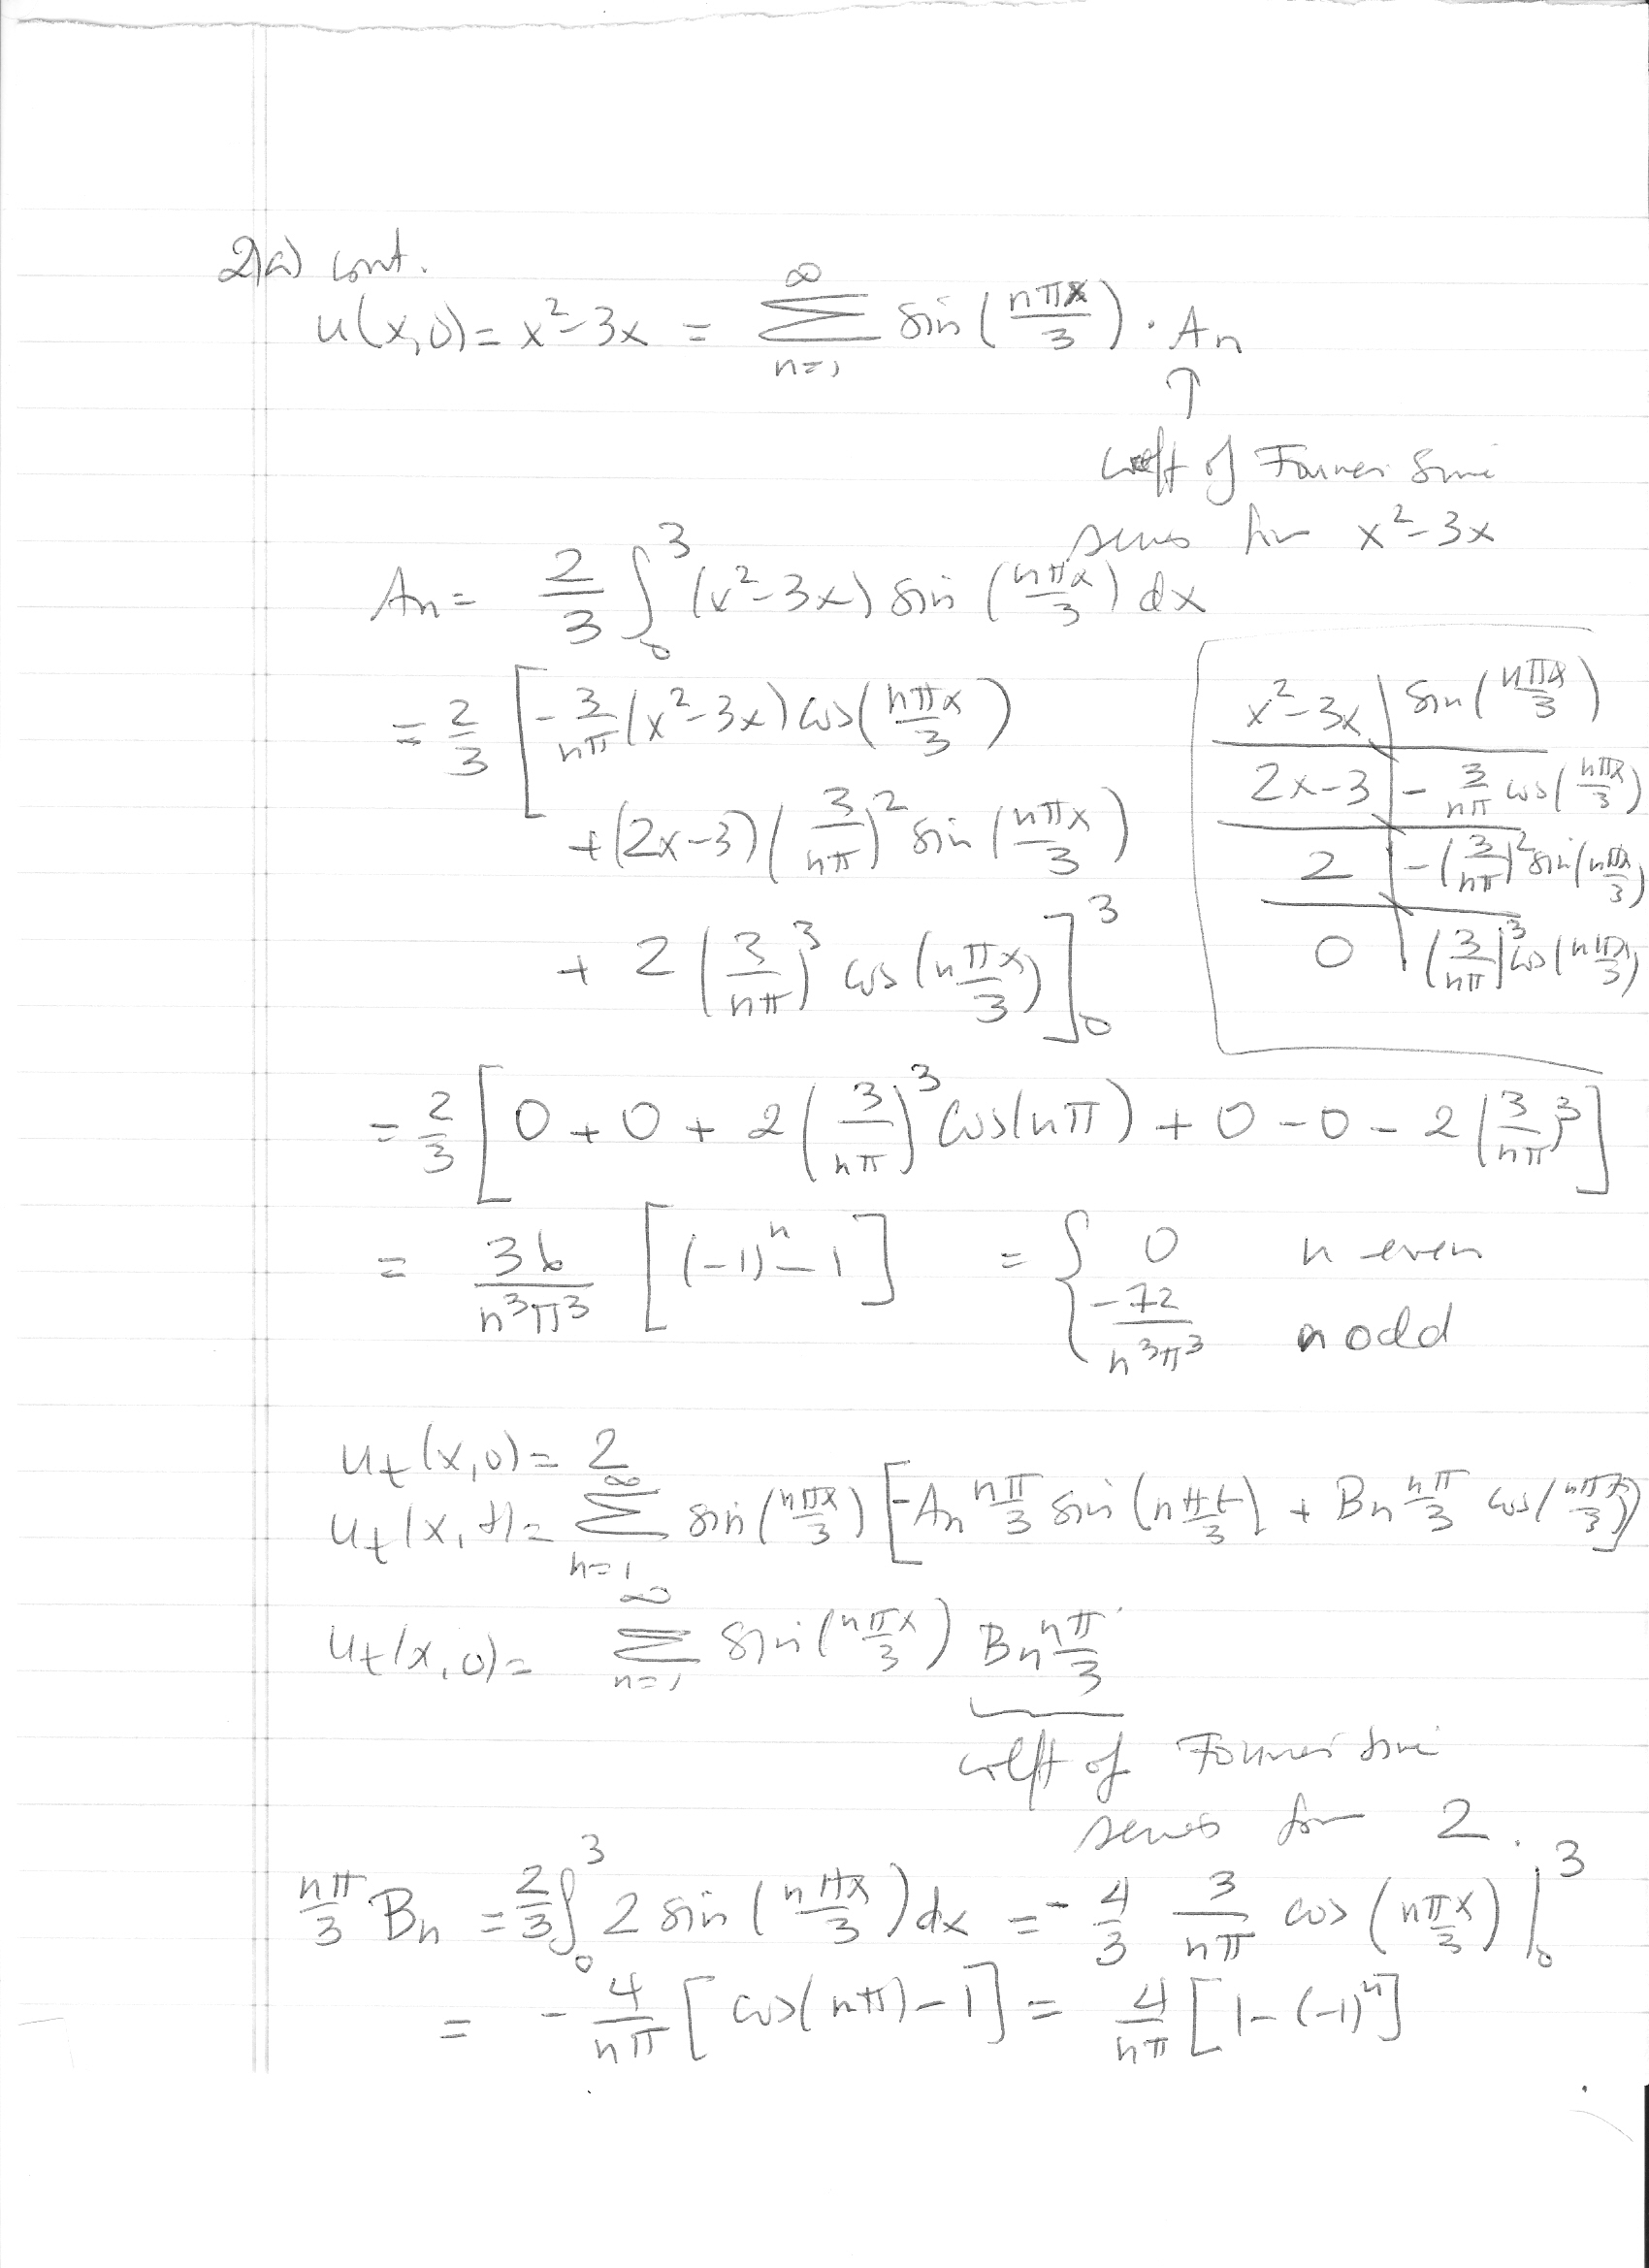 2)a) cont.
u(x,0) = x² - 3x = ∞ Σ n=1 sin(nπx/3) · An
↑
coeft of Fourier Sine
series for x² - 3x
An = 2/3 ∫₀³ (x² - 3x) sin(nπx/3) dx
= 2/3 [ -3/nπ (x² - 3x) cos(nπx/3)
+ (2x-3)(3/nπ)² sin(nπx/3)
+ 2(3/nπ)³ cos(nπx/3) ]₀³
x² - 3x | sin(nπx/3)
2x-3 | - 3/nπ cos(nπx/3)
2 | -(3/nπ)² sin(nπx/3)
0 | (3/nπ)³ cos(nπx/3)
= 2/3 [ 0 + 0 + 2(3/nπ)³ cos(nπ) + 0 - 0 - 2(3/nπ)³ ]
= 36/n³π³ [ (-1)ⁿ - 1 ] = { 0 n even
-72/n³π³ n odd
ut(x,0) = 2
ut(x,t) = ∞ Σ n=1 sin(nπx/3) [ -An nπ/3 sin(nπt/3) + Bn nπ/3 cos(nπt/3) ]
ut(x,0) = ∞ Σ n=1 sin(nπx/3) Bn nπ/3
coeft of Fourier sine
series for 2.
nπ/3 Bn = 2/3 ∫₀³ 2 sin(nπx/3) dx = - 4/3 3/nπ cos(nπx/3) |₀³
= - 4/nπ [ cos(nπ) - 1 ] = 4/nπ [ 1 - (-1)ⁿ ]